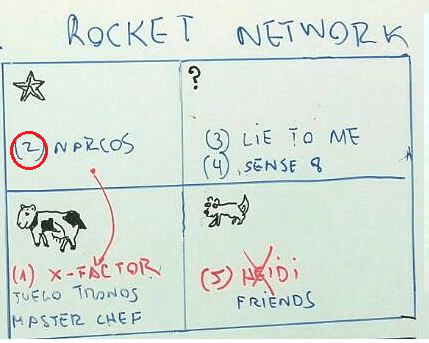 ROCKET NETWORK
?
(2) NARCOS
(3) LIE TO ME
(4) SENSE 8
(1) X-FACTOR
JUEGO TRONOS
MASTER CHEF
(5) HEIDI
FRIENDS